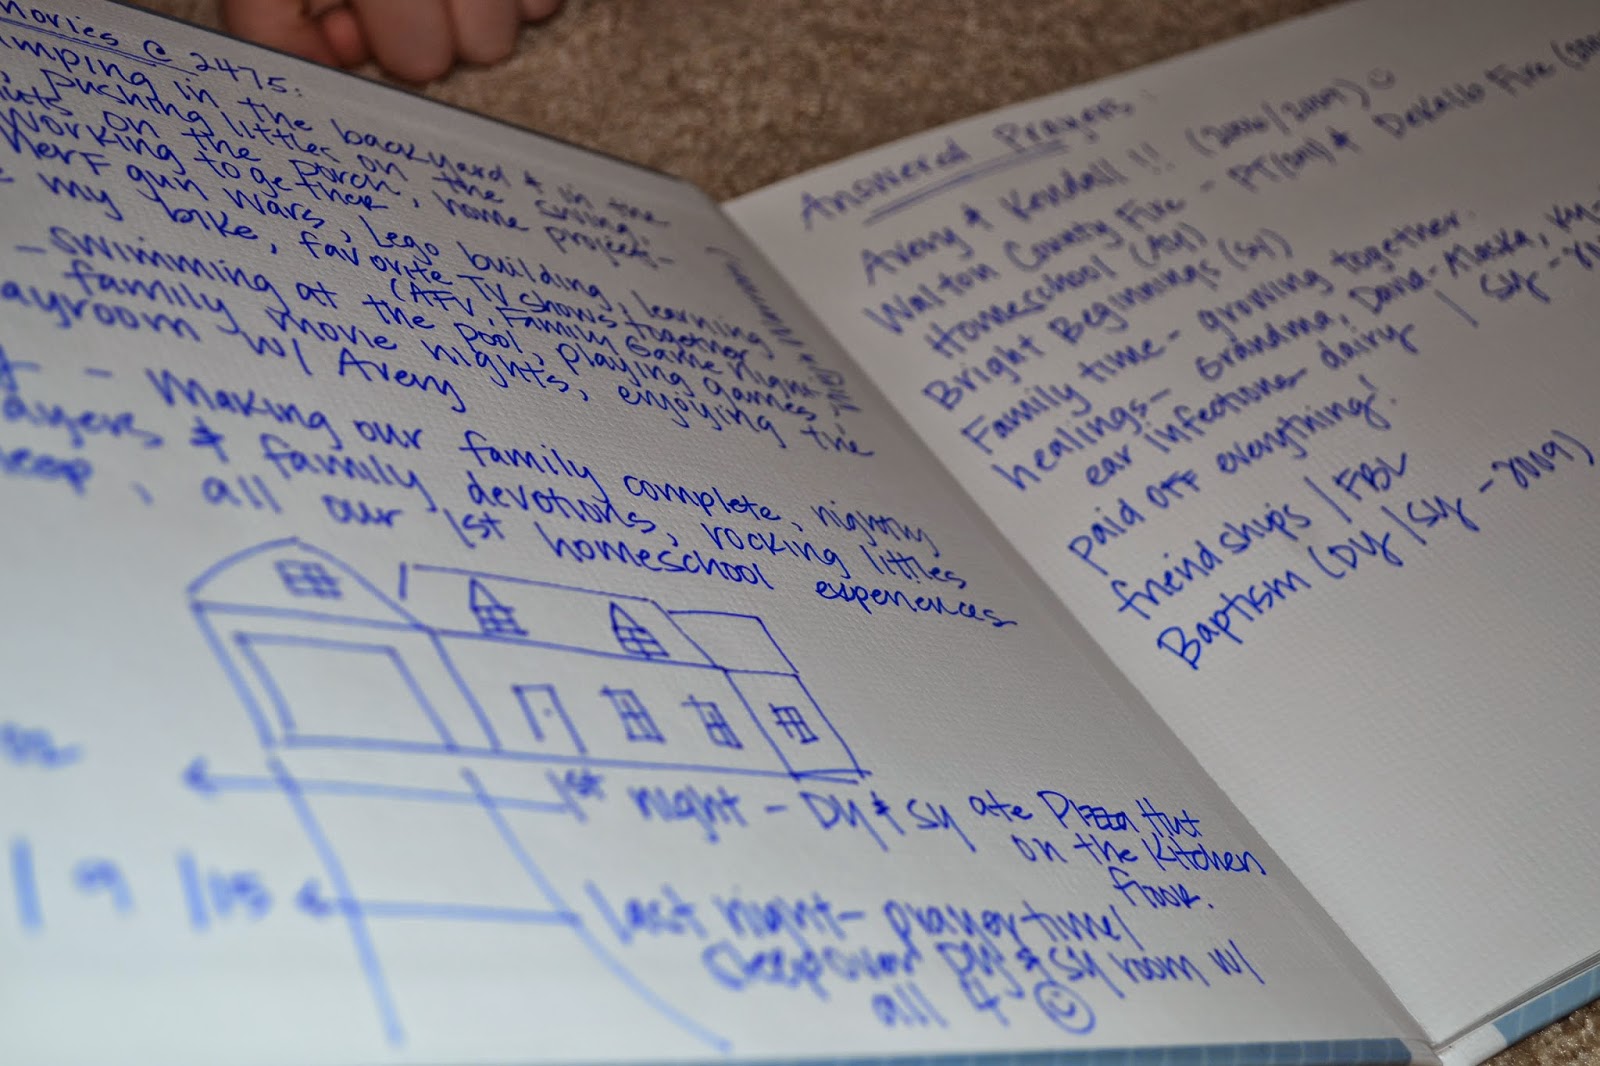 @ 2475:
in the backyard & in the
pushing littles on the swing,
on the porch, home project-
working together,
Nerf gun wars, Lego building, learning
my bike, favorite TV shows together
(AFV, Family Game Night)
- swimming at the pool, playing games
family movie nights, enjoying the
playroom w/ Avery
- Making our family complete, nightly
prayers & family devotions, rocking littles
sleep, all our 1st homeschool experiences
1st night - DY & SY ate Pizza Hut
on the kitchen
floor.
/9/15
last night - prayer time/
sleepover DY & SY room w/
all 4 ☺
Answered Prayers
Avery & Kendall!! (2006/2009) ☺
Walton County Fire - PT & DeKalb Fire
Homeschool (AY)
Bright Beginnings (SY)
Family time - growing together.
healings - Grandma, Dana - Alaska,
ear infections - dairy / SY -
paid off everything!
friendships / FBL
Baptism (DY/SY - 2009)